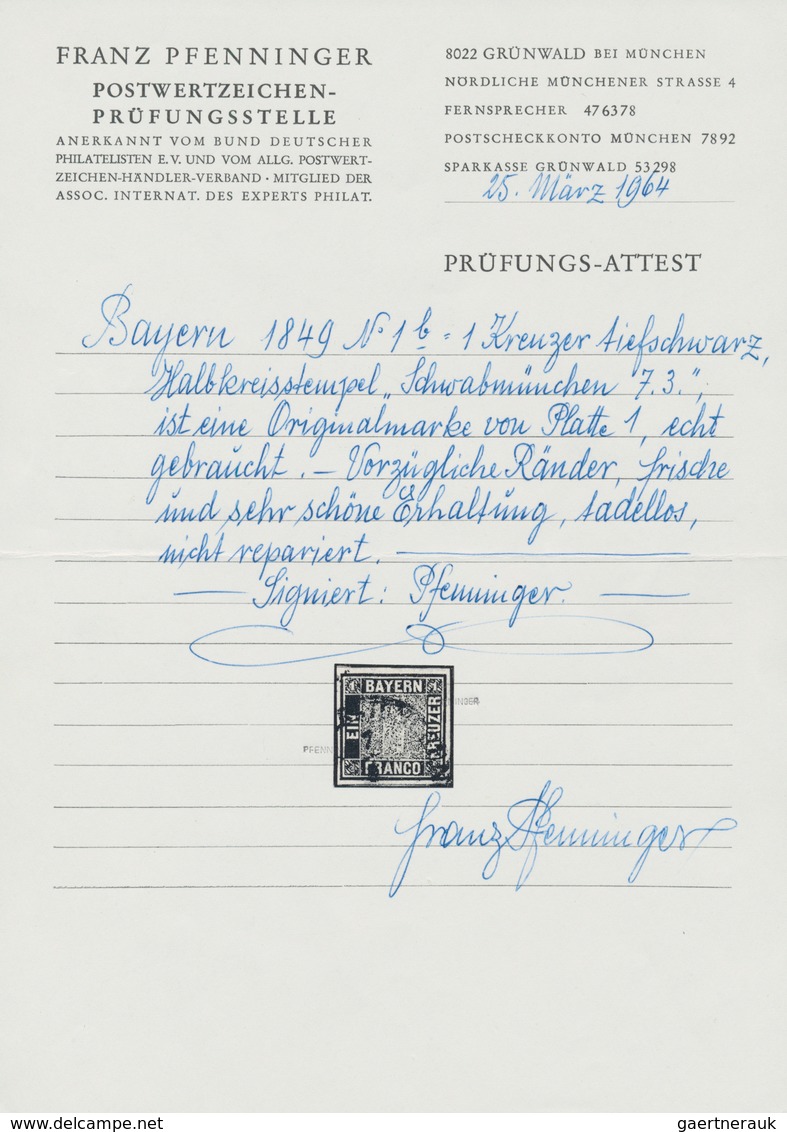 FRANZ PFENNINGER
POSTWERTZEICHEN-
PRÜFUNGSSTELLE
ANERKANNT VOM BUND DEUTSCHER
PHILATELISTEN E.V. UND VOM ALLG. POSTWERT-
ZEICHEN-HÄNDLER-VERBAND · MITGLIED DER
ASSOC. INTERNAT. DES EXPERTS PHILAT.
8022 GRÜNWALD BEI MÜNCHEN
NÖRDLICHE MÜNCHENER STRASSE 4
FERNSPRECHER 476378
POSTSCHECKKONTO MÜNCHEN 7892
SPARKASSE GRÜNWALD 53298
25. März 1964
PRÜFUNGS-ATTEST
Bayern 1849 No 1 b = 1 Kreuzer tiefschwarz,
Halbkreisstempel „Schwabmünchen 7.3.",
ist eine Originalmarke von Platte 1, echt
gebraucht. – Vorzügliche Ränder, frische
und sehr schöne Erhaltung, tadellos,
nicht repariert. —
— Signiert: Pfenninger. —
1 BAYERN 1
EIN
KREUZER
FRANCO
NINGER
PFENN
Franz Pfenninger
www.delcampe.net
gaertnerauk